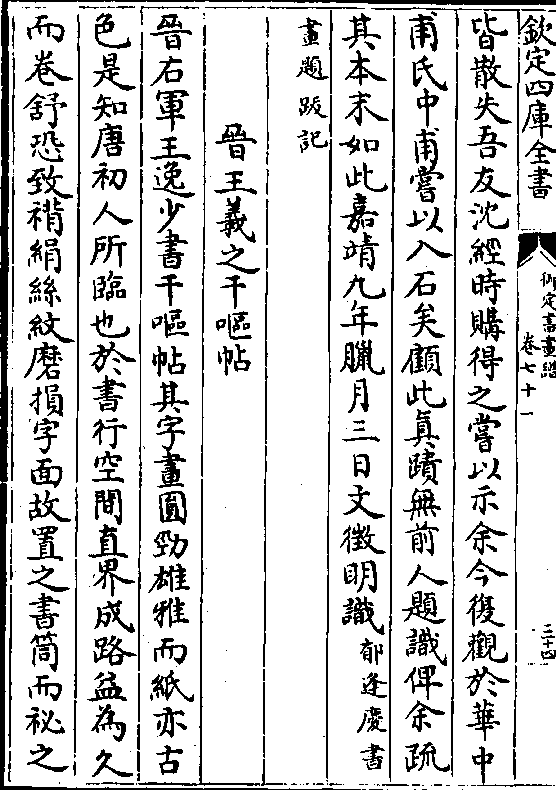 欽定四庫全書
御定書畫譜
卷七十一
三十四
皆散失吾友沈經時購得之嘗以示余今復觀於華中
甫氏中甫嘗以入石矣顧此真蹟無前人題識俾余疏
其本末如此嘉靖九年臘月三日文徵明識郁逢慶書
畫題跋記
晉王羲之千嘔帖
晉右軍王逸少書千嘔帖其字畫圓勁雄雅而紙亦古
色是知唐初人所臨也於書行空間直界成路益為久
而卷舒恐致褙絹絲紋磨損字面故置之書筒而祕之